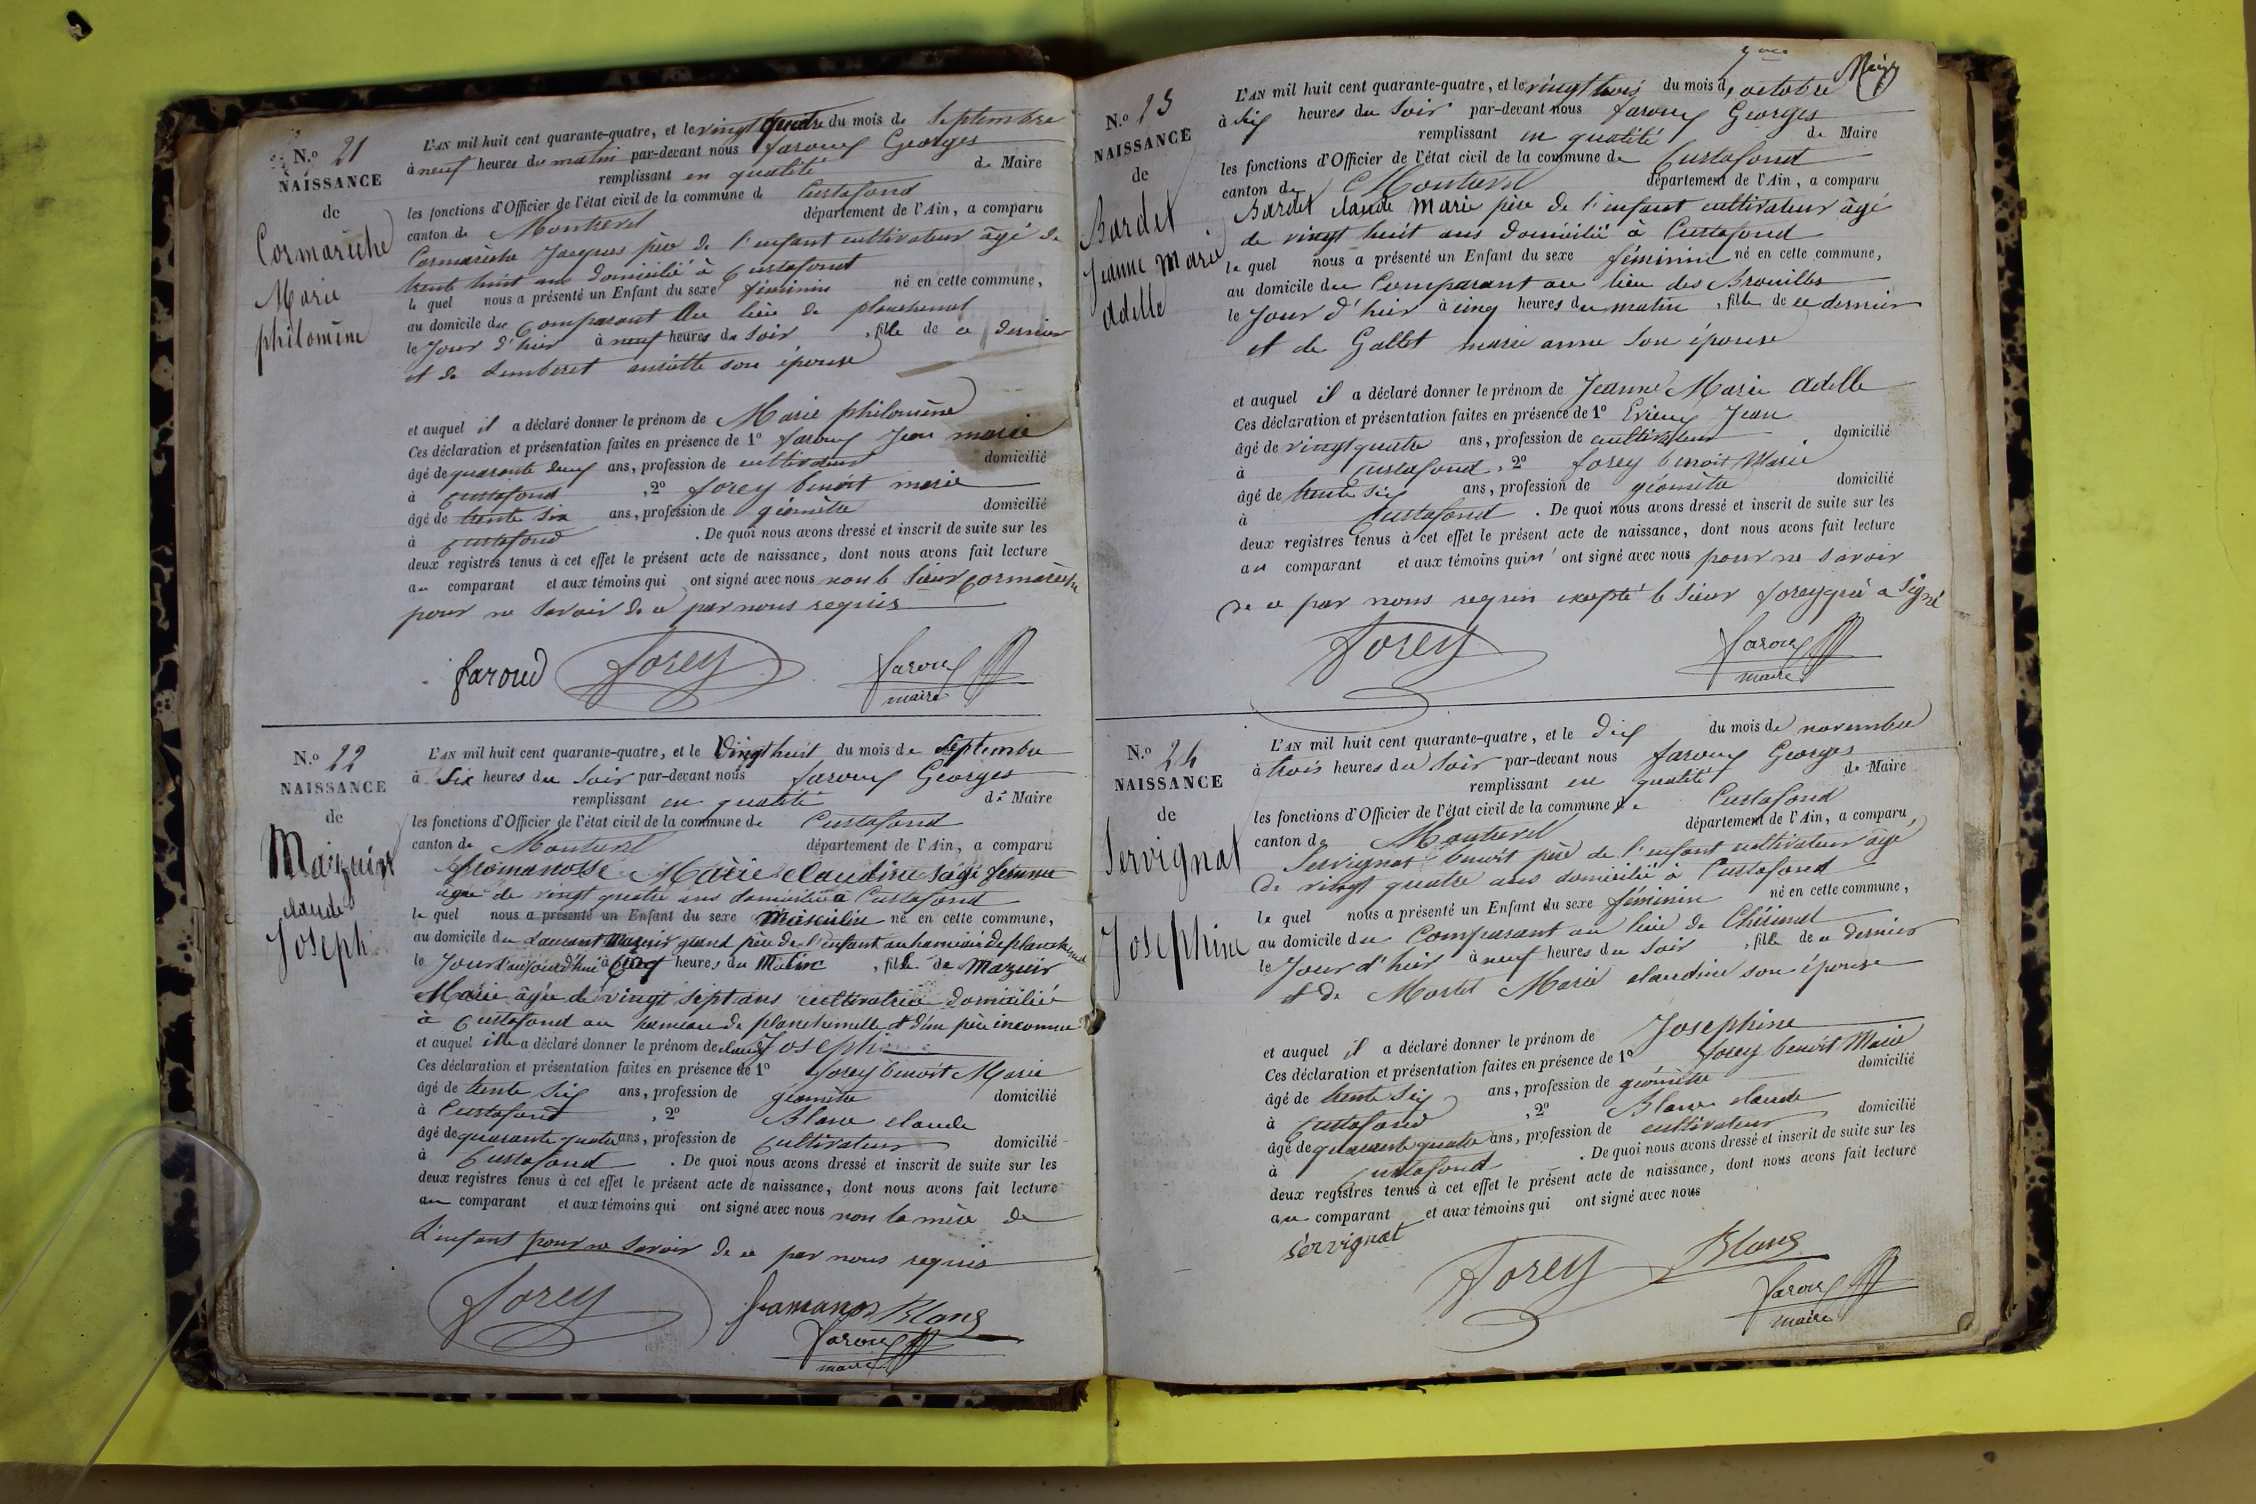 N.o 21
NAISSANCE
de
Cormarèche
Marie
philomène
L'AN mil huit cent quarante-quatre, et le vingt quatre du mois de Septembre
à neuf heures du matin par-devant nous faroux Georges
remplissant en qualité de Maire
les fonctions d'Officier de l'état civil de la commune de Curtafond
canton de Montrevel département de l'Ain, a comparu
Cormarèche Jacques père de l'enfant cultivateur âgé de
trente huit ans domicilié à Curtafond
le quel nous a présenté un Enfant du sexe féminin né en cette commune,
au domicile du Comparant Au lieu de planchemel
le Jour d'hier à neuf heures du Soir , fille de ce dernier
et de Lemberet son épouse
et auquel il a déclaré donner le prénom de Marie philomène
Ces déclaration et présentation faites en présence de 1o faroux Jean marie
âgé de quarante deux ans, profession de cultivateur domicilié
à Curtafond , 2o forey benoit marie
âgé de trente six ans, profession de géomètre domicilié
à Curtafond . De quoi nous avons dressé et inscrit de suite sur les
deux registres tenus à cet effet le présent acte de naissance, dont nous avons fait lecture
au comparant et aux témoins qui ont signé avec nous non le Sieur Cormarèche
pour ne Savoir de ce par nous requis
faroud forey faroux
maire
N.o 22
NAISSANCE
de
Mazuir
claude
Joseph
L'AN mil huit cent quarante-quatre, et le Vingt huit du mois de Septembre
à Six heures du Soir par-devant nous faroux Georges
remplissant en qualité de Maire
les fonctions d'Officier de l'état civil de la commune de Curtafond
canton de Montrevel département de l'Ain, a comparu
Marie claudine Sage femme
âgée de vingt quatre ans domiciliée à Curtafond
le quel nous a présenté un Enfant du sexe Masculin né en cette commune,
au domicile du Laurent Mazuir grand père de l'enfant au hameau de planchemel
le Jour d'aujourd'hui à heures du Matin , fille de Mazuir
Marie âgée de vingt sept ans cultivatrice domiciliée
à Curtafond au hameau de planchemelle et d'un père inconnu
et auquel elle a déclaré donner le prénom de claude Joseph
Ces déclaration et présentation faites en présence de 1o forey benoit Marie
âgé de trente Six ans, profession de géomètre domicilié
à Curtafond , 2o Blanc claude
âgé de quarante quatre ans, profession de Cultivateur domicilié
à Curtafond . De quoi nous avons dressé et inscrit de suite sur les
deux registres tenus à cet effet le présent acte de naissance, dont nous avons fait lecture
au comparant et aux témoins qui ont signé avec nous non la mère de
L'enfant pour ne Savoir de ce par nous requis
forey Blanc
faroux
maire
N.o 23
NAISSANCE
de
Bardet
Jeanne Marie
Adelle
L'AN mil huit cent quarante-quatre, et le vingt trois du mois d'octobre
à Six heures du Soir par-devant nous faroux Georges
remplissant en qualité de Maire
les fonctions d'Officier de l'état civil de la commune de Curtafond
canton de Montrevel département de l'Ain, a comparu
Bardet claude Marie père de l'enfant cultivateur âgé
de vingt huit ans domicilié à Curtafond
le quel nous a présenté un Enfant du sexe féminin né en cette commune,
au domicile du Comparant au lieu des Brouilles
le Jour d'hier à cinq heures du matin , fille de ce dernier
et de Gallet marie anne Son épouse
et auquel il a déclaré donner le prénom de Jeanne Marie Adelle
Ces déclaration et présentation faites en présence de 1o Evieux Jean
âgé de vingt quatre ans, profession de cultivateur domicilié
à Curtafond , 2o forey benoit Marie
âgé de trente Six ans, profession de géomètre domicilié
à Curtafond . De quoi nous avons dressé et inscrit de suite sur les
deux registres tenus à cet effet le présent acte de naissance, dont nous avons fait lecture
au comparant et aux témoins qui n'ont signé avec nous pour ne Savoir
de ce par nous requis excepté le Sieur forey qui a Signé
forey faroux
maire
N.o 24
NAISSANCE
de
Servignat
Josephine
L'AN mil huit cent quarante-quatre, et le Dix du mois de novembre
à trois heures du Soir par-devant nous faroux Georges
remplissant en qualité de Maire
les fonctions d'Officier de l'état civil de la commune de Curtafond
canton de Montrevel département de l'Ain, a comparu,
Servignat benoit père de l'enfant cultivateur âgé
De vingt quatre ans domicilié à Curtafond
le quel nous a présenté un Enfant du sexe féminin né en cette commune,
au domicile du Comparant au lieu de
le Jour d'hier à neuf heures du Soir , fille de ce dernier
et de Mortet Marie claudine son épouse
et auquel il a déclaré donner le prénom de Josephine
Ces déclaration et présentation faites en présence de 1o forey benoit Marie
âgé de trente Six ans, profession de géomètre domicilié
à Curtafond , 2o Blanc claude
âgé de quarante quatre ans, profession de cultivateur domicilié
à Curtafond . De quoi nous avons dressé et inscrit de suite sur les
deux registres tenus à cet effet le présent acte de naissance, dont nous avons fait lecture
au comparant et aux témoins qui ont signé avec nous
Servignat
forey Blanc
faroux
maire